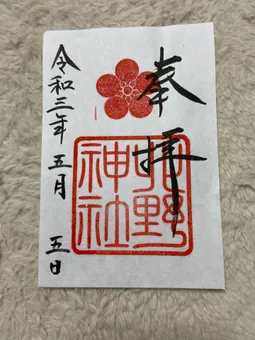 奉拝
神社
令和三年五月五日